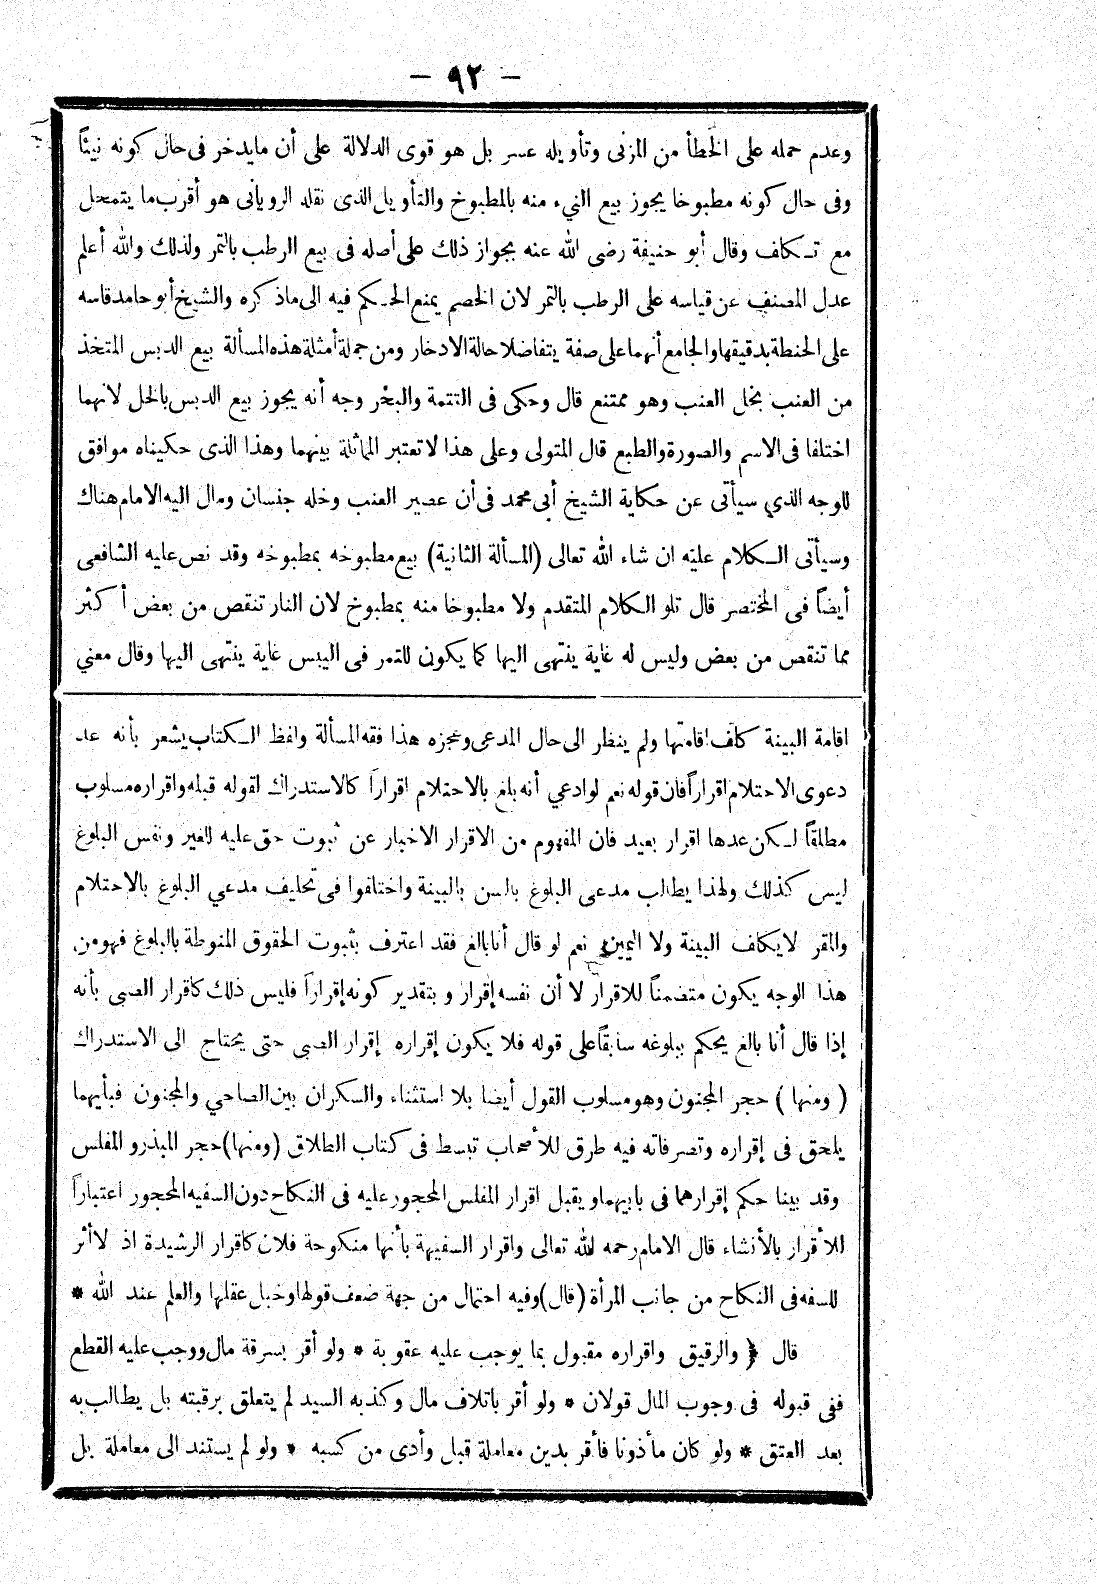 — ٩٢ —
وعدم حمله على الخطأ من المزنى وتأويله عسر بل هو قوى الدلالة على أن مايدخر فى حال كونه نيئاً
وفى حال كونه مطبوخا يجوز بيع النيء منه بالمطبوخ والتأويل الذى نقله الرويانى هو أقرب ما يتمحل
مع تكلف وقال أبو حنيفة رضى الله عنه بجواز ذلك على أصله فى بيع الرطب بالتمر ولذلك والله أعلم
عدل المصنف عن قياسه على الرطب بالتمر لان الخصم يمنع الحكم فيه الى ماذكره والشيخ أبو حامد قاسه
على الحنطة بدقيقها والجامع أنهما على صفة يتفاضلا حالة الادخار ومن جملة أمثلة هذه المسألة بيع الدبس المتخذ
من العنب بخل العنب وهو ممتنع قال وحكى فى التتمة والبحر وجه أنه يجوز بيع الدبس بالخل لانهما
اختلفا فى الاسم والصورة والطبع قال المتولى وعلى هذا لا تعتبر المماثلة بينهما وهذا الذى حكيناه موافق
للوجه الذى سيأتى عن حكاية الشيخ أبى محمد فى أن عصير العنب وخله جنسان ومال اليه الامام هناك
وسيأتى الكلام عليه ان شاء الله تعالى (المسألة الثانية) بيع مطبوخه بمطبوخه وقد نص عليه الشافعى
أيضاً فى المختصر قال تلو الكلام المتقدم ولا مطبوخا منه بمطبوخ لان النار تنقص من بعض أكثر
مما تنقص من بعض وليس له غاية ينتهى اليها كما يكون للتمر فى اليبس غاية ينتهى اليها وقال معني
اقامة البينة كلف اقامتها ولم ينظر الى حال المدعى وعجزه هذا فقه المسألة ولفظ الكتاب يشعر بأنه عد
دعوى الاحتلام اقراراً فان قوله نعم لو ادعي أنه بلغ بالاحتلام اقراراً كالاستدراك لقوله قبله واقراره مسلوب
مطلقاً لكن عدها اقرار بعيد فان المفهوم من الاقرار الاخبار عن ثبوت حق عليه للغير ونفس البلوغ
ليس كذلك ولهذا يطالب مدعى البلوغ بالسن بالبينة واختلفوا فى تحليف مدعي البلوغ بالاحتلام
والمقر لا يكلف البينة ولا اليمين نعم لو قال أنا بالغ فقد اعترف بثبوت الحقوق المنوطة بالبلوغ فهو من
هذا الوجه يكون متضمناً للاقرار لا أن نفسه إقرار وبتقدير كونه إقراراً فليس ذلك كاقرار الصبى بأنه
إذا قال أنا بالغ يحكم ببلوغه سابقاً على قوله فلا يكون إقراره إقرار الصبى حتى يحتاج الى الاستدراك
( ومنها ) حجر المجنون وهو مسلوب القول أيضا بلا استثناء والسكران بين الصاحي والمجنون فبأيهما
يلحق فى إقراره وتصرفاته فيه طرق للأصحاب تبسط فى كتاب الطلاق (ومنها) حجر المبذر والمفلس
وقد بينا حكم إقرارهما فى بابيهما ويقبل اقرار المفلس المحجور عليه فى النكاح دون السفيه المحجور اعتباراً
للأقرار بالأنشاء قال الامام رحمه الله تعالى واقرار السفيهة بأنها منكوحة فلان كاقرار الرشيدة اذ لا أثر
للسفه فى النكاح من جانب المرأة (قال) وفيه احتمال من جهة ضعف قولها وخبل عقلها والعلم عند الله *
قال ﴿ والرقيق واقراره مقبول بما يوجب عليه عقوبة * ولو أقر بسرقة مال ووجب عليه القطع
ففى قبوله فى وجوب المال قولان * ولو أقر باتلاف مال وكذبه السيد لم يتعلق برقبته بل يطالب به
بعد العتق * ولو كان مأذونا فأقر بدين معاملة قبل وأدى من كسبه * ولو لم يستند الى معاملة بل